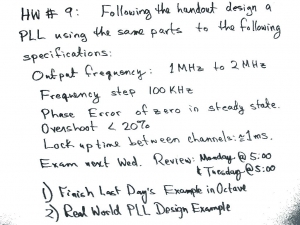 HW # 9: Following the handout design a
PLL using the same parts to the following
specifications:
Output frequency: 1MHz to 2MHz
Frequency step 100KHz
Phase Error of zero in steady state.
Overshoot < 20%
Lock up time between channels: ±1ms.
Exam next Wed. Review: Monday @ 5:00
& Tuesday @ 5:00
1) Finish Last Day's Example in Octave
2) Real World PLL Design Example